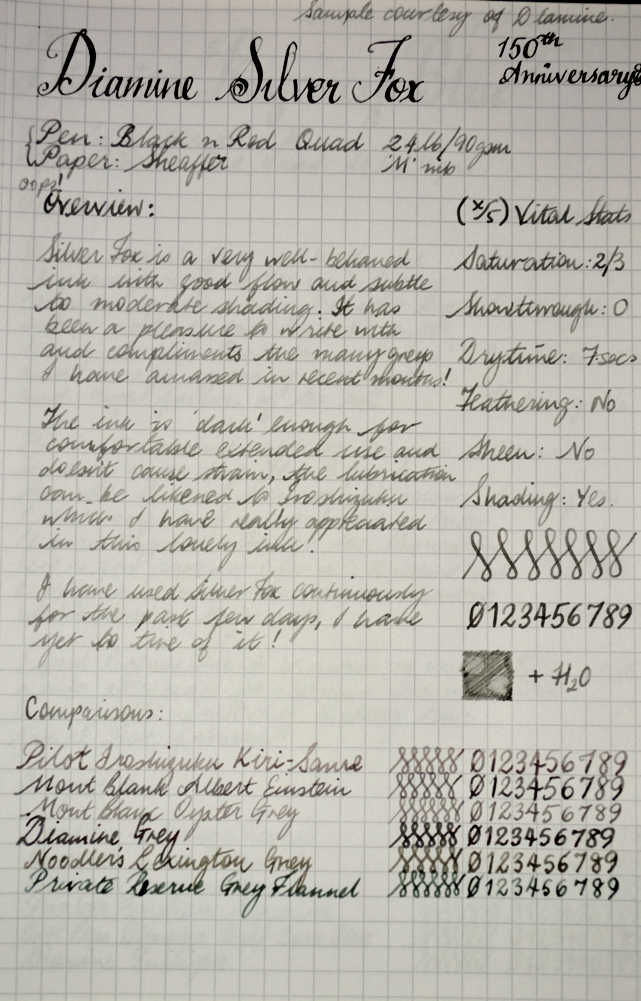 Sample courtesy of Diamine.
Diamine Silver Fox
150th
Anniversary
Pen: Black n Red Quad 24lb/90gsm
Paper: Sheaffer 'M' nib
oops!
Overview:
Silver Fox is a very well-behaved
ink with good flow and subtle
to moderate shading. It has
been a pleasure to write with
and compliments the many greys
I have amassed in recent months!
The ink is 'dark' enough for
comfortable extended use and
doesn't cause strain, the lubrication
can be likened to Iroshizuku
which I have really appreciated
in this lovely ink!
I have used Silver Fox continuously
for the past few days, I have
yet to tire of it!
(x/5) Vital Stats
Saturation: 2/3
Showthrough: 0
Drytime: 7secs
Feathering: No
Sheen: No
Shading: Yes.
0123456789
+ H2O
Comparisons:
Pilot Iroshizuku Kiri-Same 0123456789
Mont Blanc Albert Einstein 0123456789
Mont Blanc Oyster Grey 0123456789
Diamine Grey 0123456789
Noodler's Lexington Grey 0123456789
Private Reserve Grey Flannel 0123456789